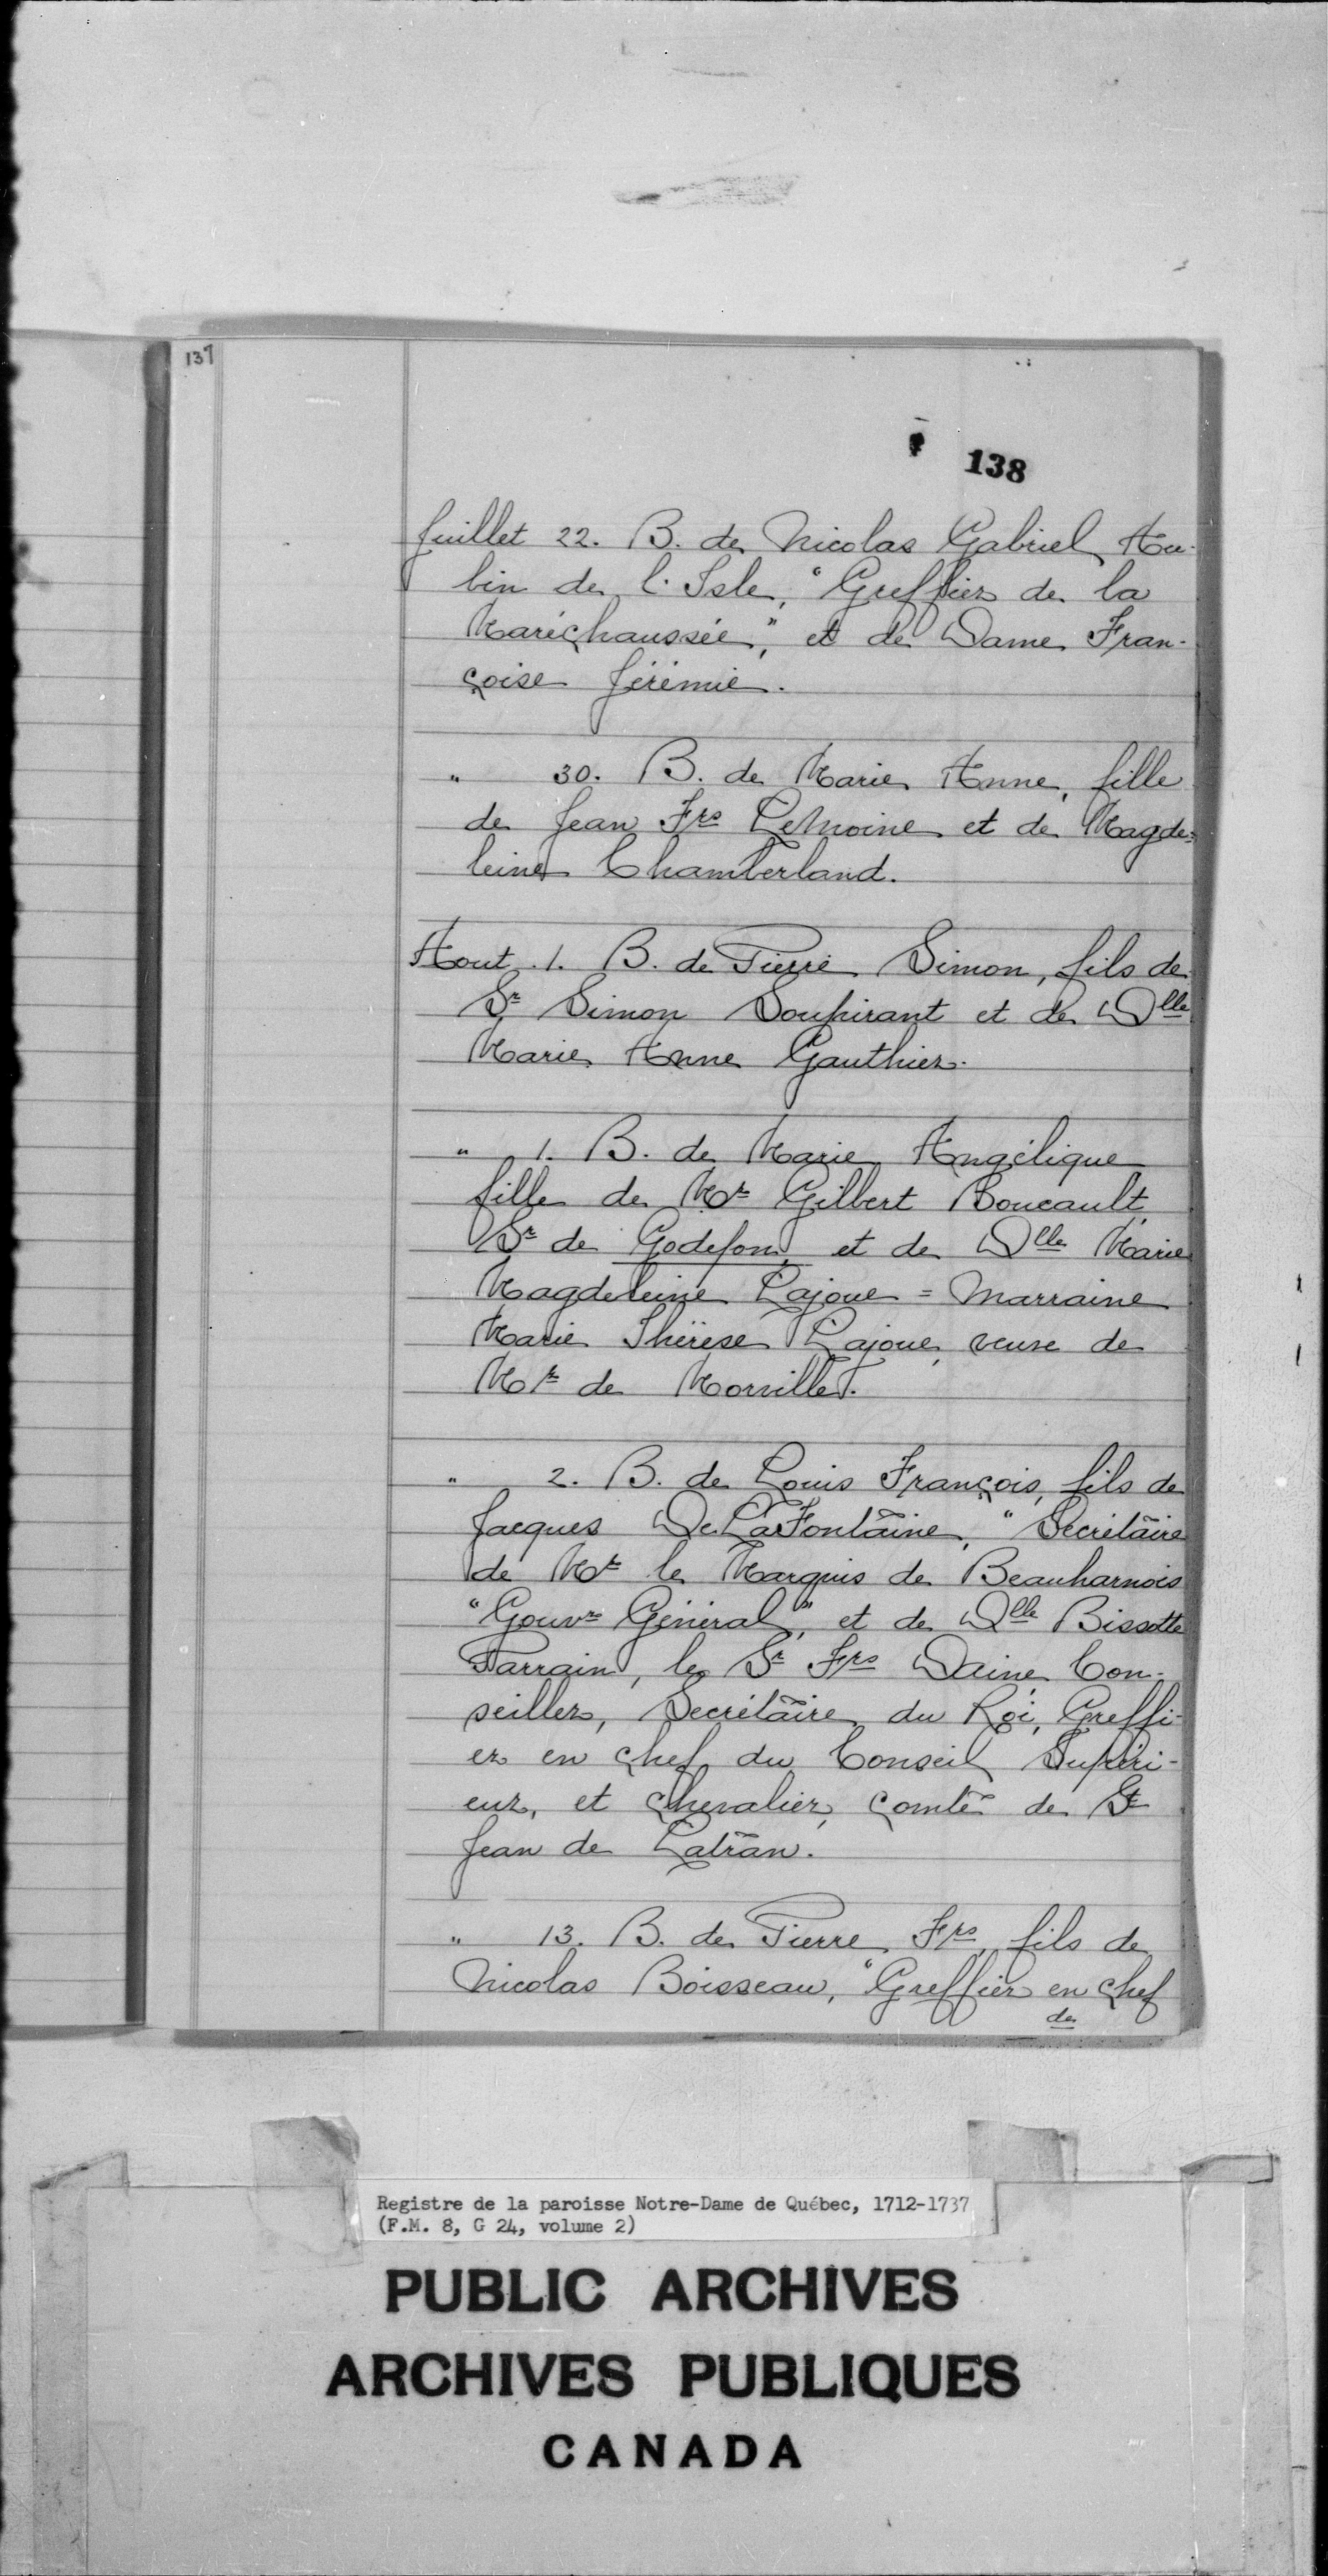 137
138
Juillet 22. B. de Nicolas Gabriel Au-
bin de l'Isle, "Greffier de la
Maréchaussée," et de Dame Fran-
çoise Jérémie.
" 30. B. de Marie Anne, fille
de Jean Frs LeMoine et de Magde=
leine Chamberland.
Aout 1. B. de Pierre Simon, fils de
Sr Simon Soupirant et de Dlle
Marie Anne Gauthier.
" 1. B. de Marie Angélique
fille de Mr Gilbert Boucault,
Sr de Godefon, et de Dlle Marie
Magdeleine Lajoue = Marraine
Marie Thérèse Lajoue, veuve de
Mr de Morville.
" 2. B. de Louis François, fils de
Jacques De LaFontaine, "Secrétaire
de Mr le Marquis de Beauharnois
"Gouvr Général", et de Dlle Bissotte
Parrain, le Sr Frs Daine, Con-
seiller, Secrétaire du Roi, Greffi-
er en chef du Conseil Supéri-
eur, et chevalier, comte de St
Jean de Latran.
" 13. B. de Pierre Frs, fils de
Nicolas Boisseau, "Greffier en chef
de
Registre de la paroisse Notre-Dame de Québec, 1712-1737
(F.M. 8, G 24, volume 2)
PUBLIC ARCHIVES
ARCHIVES PUBLIQUES
CANADA